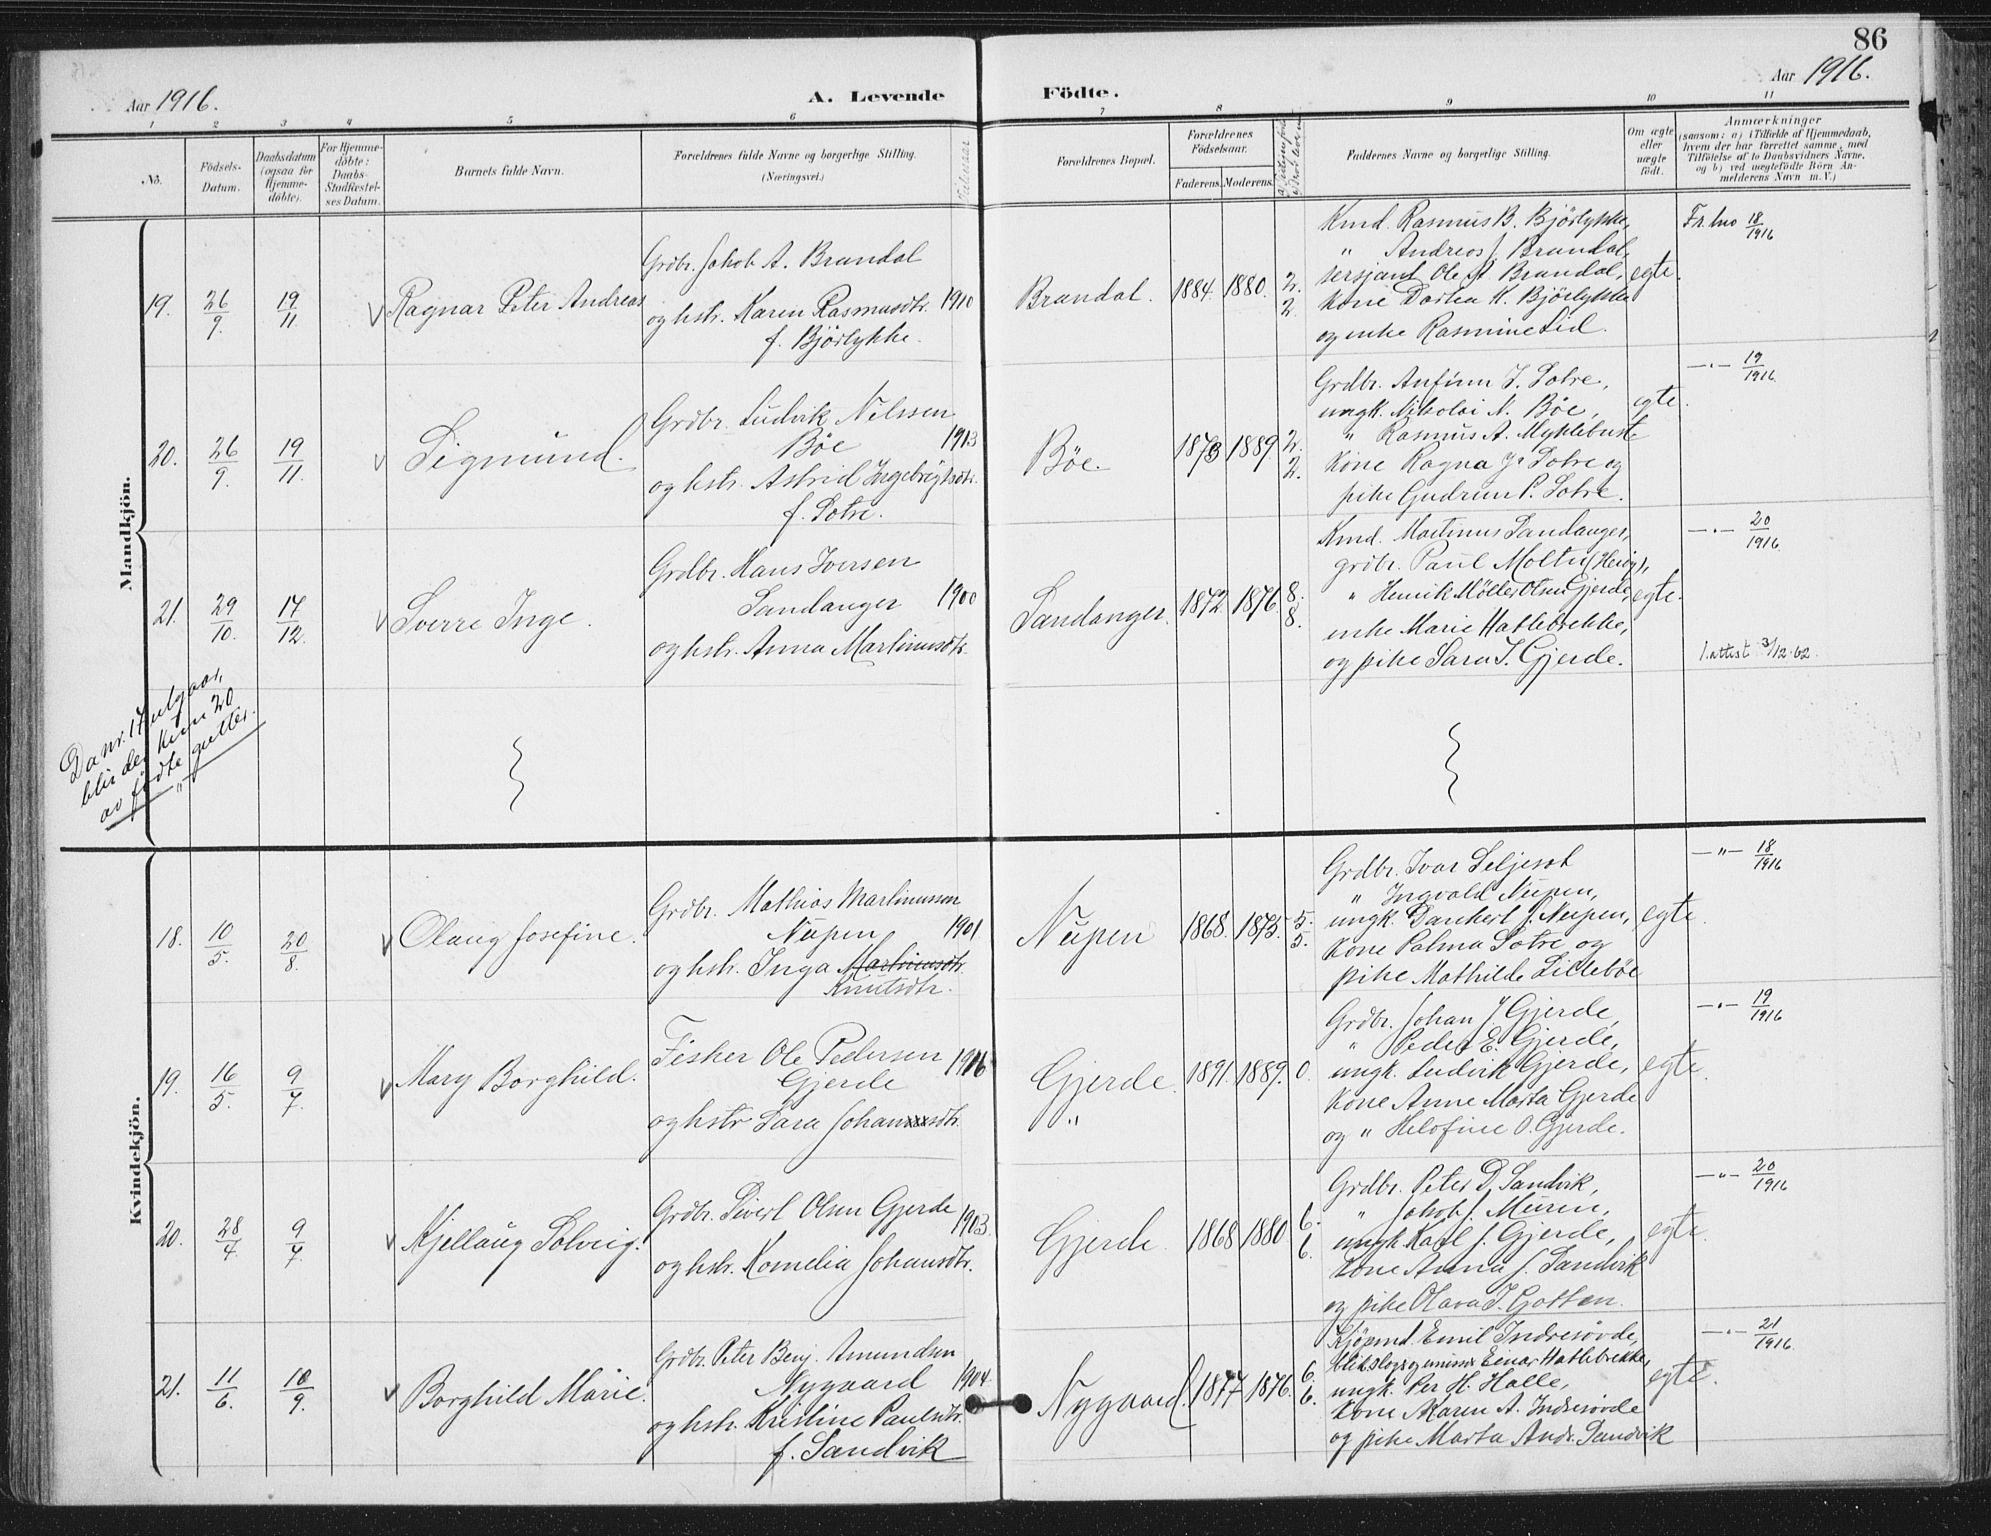 86
Aar 1916.
A. Levende
Födte.
Aar 1916.
1 2 3 4 5 6 7 8 9 10 11
No.
Födsels-
Datum.
Daabsdatum
(ogsaa for
Hjemme-
döbte).
For Hjemme-
döbte:
Daabs-
Stadfæstel-
ses Datum.
Barnets fulde Navn.
Forældrenes fulde Navne og borgerlige Stilling.
(Næringsvei.)
Forældrenes Bopæl.
Forældrenes
Födselsaar.
Faderens.
Moderens.
Faddernes Navne og borgerlige Stilling.
Om ægte
eller
uægte
födt.
Anmærkninger
(saasom: a) i Tilfælde af Hjemmedaab,
hvem der har forrettet samme, med
Tilföielse af to Daabsvidners Navne,
og b) ved uægtefödte Börn An-
melderens Navn m. V.)
Mandkjön.
19.
26/9.
19/11.
Ragnar Peter Andreas
Grdbr. Jakob A. Brandal
og hstr. Karen Rasmusdtr. 1910
f. Björlykke.
Brandal.
1884.
1880.
2.
2.
Kmd. Rasmus B. Björlykke,
" Andreas J. Brandal,
sersjant Ole A Brandal,
kone Dortea K. Björlykke
og enke Rasmine Lid.
egte.
Fr. lno 18/1916
20.
26/9.
19/11.
Sigmund.
Grdbr. Ludvik Nelssen
Böe 1913
og hstr. Astrid Ingebrigtsdtr.
f. Sotre.
Böe.
1873
1889
2.
2.
Grdbr. Anfinn J. Sotre,
ungk. Nikolai N. Böe,
" Rasmus A. Myklebust
kone Ragna J. Sotre og
pike Gudrun P. Sotre.
egte.
—"— 19/1916.
21.
29/10.
17/12.
Sverre Inge.
Grdbr. Hans Iversen
Sandanger 1900
og hstr. Anna Martinusdtr.
Sandanger.
1872.
1876.
8.
8.
Kmd. Martinus Sandanger,
grdbr. Paul Moltu (Heröy),
" Henrik Möller Olsen Gjerde,
enke Marie Hatlebrekke,
og pike Sara J. Gjerde.
egte.
—"— 20/1916.
1 attest 3/12-62.
Da nr. 17 utgaar,
blir der kun 20
av födte gutter.
"
Kvindekjön.
18.
10/5.
20/8.
Olaug Josefine.
Grdbr. Mathias Martinussen
Nupen 1901
og hstr. Inga Martinusdtr.
Knutsdtr.
Nupen
1868.
1875.
5.
5.
Grdbr. Ivar Seljeset
" Ingvald Nupen,
ungk. Danckert J. Nupen,
kone Palma Sotre og
pike Mathilde Lilleböe
egte.
—"— 18/1916
19.
16/5.
9/7.
Mary Borghild.
Fisker Ole Pedersen
Gjerde 1916
og hstr Sara Johansdtr.
Gjerde.
"
1891.
1889.
0.
Grdbr. Johan J Gjerde,
" Peder E. Gjerde,
ungk. Ludvik Gjerde,
kone Anne Marta Gjerde
og " Helofine O. Gjerde.
egte.
—"— 19/1916
20.
28/4.
9/7.
Kjellaug Solveig.
Grdbr. Sivert Olsen Gjerde
1903.
og hstr. Kornelia Johansdtr.
Gjerde
1868
1880
6.
6.
Grdbr. Peter D. Sandvik,
" Jakob J. Muren,
ungk. Karl J. Gjerde,
kone Anna J. Sandvik
og pike Olava J. Gotten.
egte.
—"— 20/1916
21.
11/6.
10/9.
Borghild Marie.
Grdbr. Peter Benj. Amundsen
Nygaard 1904.
og hstr. Kristine Paulsdtr.
f. Sandvik
Nygaard.
1877
1876.
6.
6.
Kjöpmd. Emil Indresövde,
Einar Hatlebrekke,
ungk. Per H. Halle,
kone Maren A. Indresövde
og pike Marta Andr. Sandvik
egte.
—"— 21/1916.